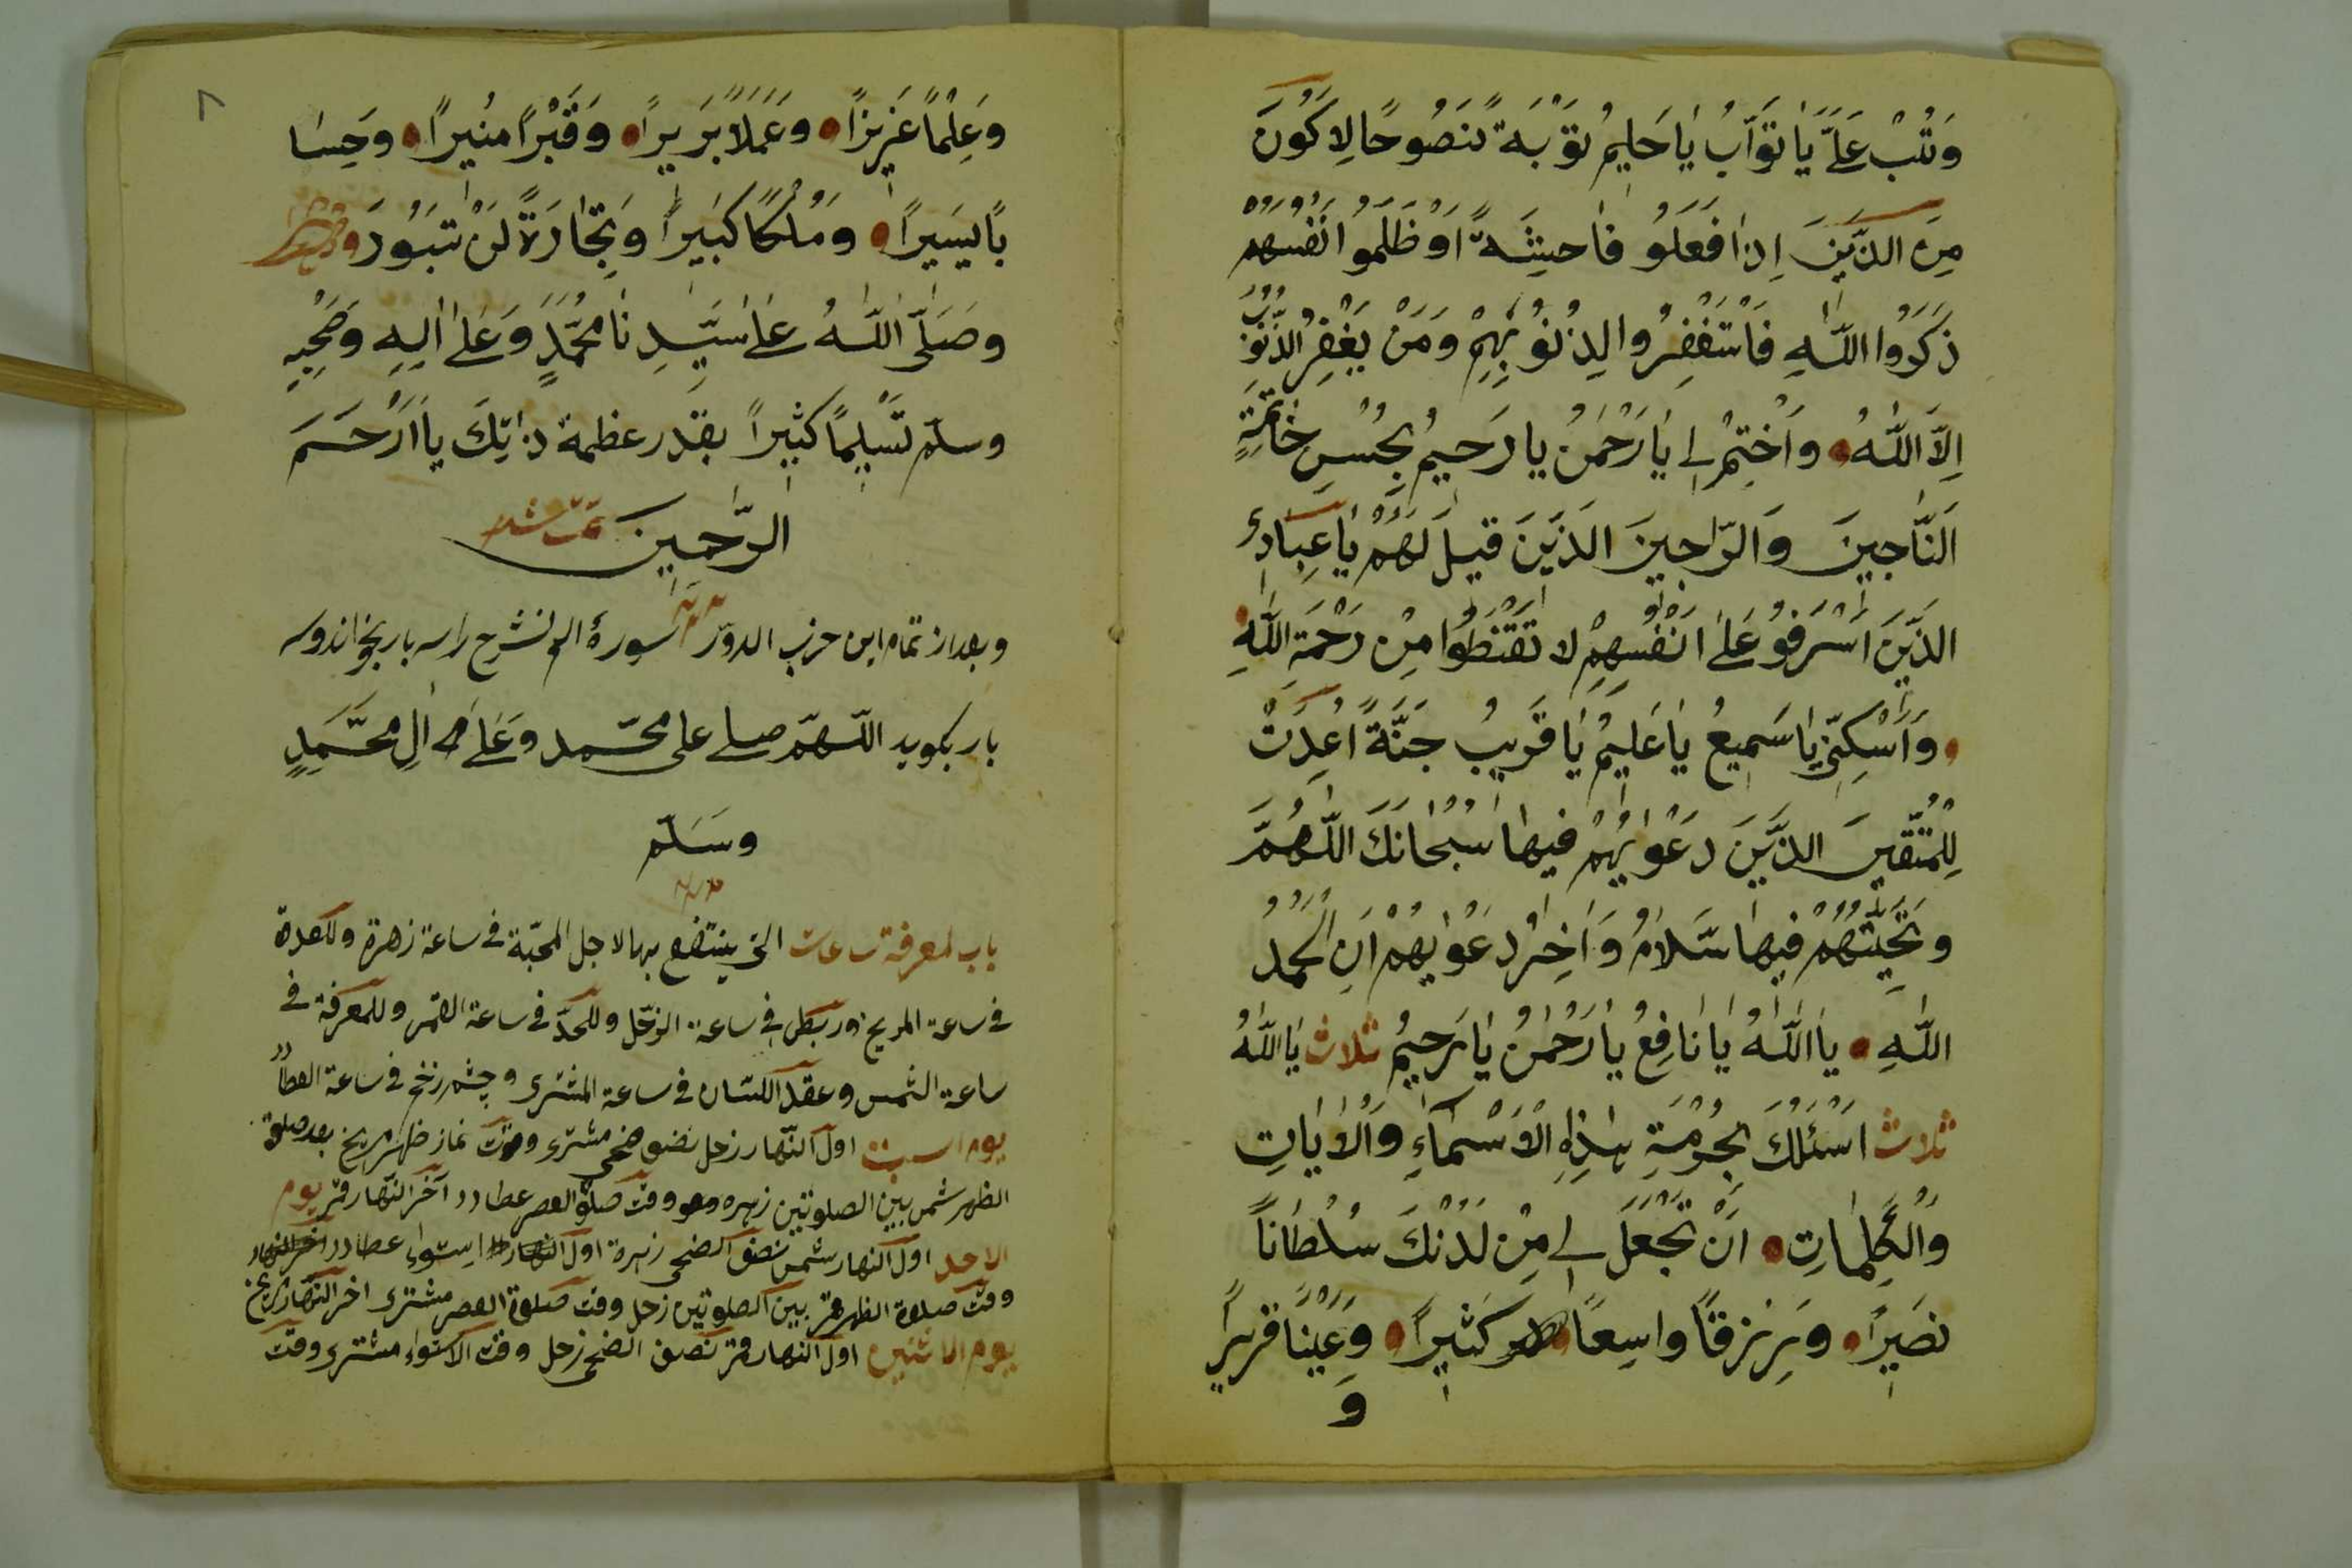 وَتُبْ عَلَيَّ يَا تَوَّابُ يَا حَلِيمُ تَوْبَةً نَصُوحًا لِاَكُونَ
مِنَ الَّذِينَ اِذَا فَعَلُو فَاحِشَةً اَوْ ظَلَمُوا اَنْفُسَهُمْ
ذَكَرُوا اللّٰهِ فَاسْتَغْفِرُوا لِذُنُوبِهِمْ وَمَنْ يَغْفِرُ الذُّنُوبَ
اِلَّا اللّٰهُ وَاخْتِمْ لِي يَا رَحْمٰنُ يَا رَحِيمُ بِحُسْنِ خَاتِمَةِ
النَّاجِينَ وَالرَّاجِينَ الَّذِينَ قِيلَ لَهُمْ يَا عِبَادِيَ
الَّذِينَ اَسْرَفُو عَلٰى اَنْفُسِهِمْ لَا تَقْنَطُوا مِنْ رَحْمَةِ اللّٰهِ
وَاَسْكِنِّي يَا سَمِيعُ يَا عَلِيمُ يَا قَرِيبُ جَنَّةً اُعِدَتْ
لِلْمُتَّقِينَ الَّذِينَ دَعْوٰيهُمْ فِيهَا سُبْحَانَكَ اللّٰهُمَّ
وَتَحِيَّتُهُمْ فِيهَا سَلَامٌ وَاٰخِرُ دَعْوٰيهُمْ اَنِ الْحَمْدُ
اللّٰهِ يَا اَللّٰهُ يَا نَافِعُ يَا رَحْمٰنُ يَا رَحِيمُ ثلاث يَا اَللّٰهُ
ثلاث اَسْئَلُكَ بِحُرْمَةِ هٰذِهِ الْاَسْمَاءِ وَالْاٰيَاتِ
وَالْكَلِمَاتِ اَنْ تَجْعَلَ لِي مِنْ لَدُنْكَ سُلْطَانًا
نَصِيرًا وَرِزْقًا وَاسِعًا كَثِيرًا وَعَيْنًا قَرِيرًا
وَ
٨
وَعِلْمًا غَزِيرًا وَعَمَلًا بَرِيرًا وَقَبْرًا مُنِيرًا وَحِسَا
بًا يَسِيرًا وَمُلْكًا كَبِيرًا وَتِجَارَةً لَنْ تَبُورَ
وَصَلَّى اللّٰهُ عَلٰى سَيِّدِنَا مُحَمَّدٍ وَعَلٰى اٰلِهِ وَصَحْبِهِ
وسلّم تَسْلِيمًا كَثِيرًا بقدر عظمة ذاتِكَ يَا اَرْحَمَ
الرَّاحِمِينَ
وبعد از تمام این حزب الدور سورۀ الم نشرح را سه بار بخواند و سه
بار بکوید اللّهمّ صلے علی محمّد وَعَلٰى اٰلِ مُحَمَّدٍ
وَسَلّم
باب لمعرفة ساعات التی ینتفع بها لاجل المحبّة فی ساعة زهرة وللعدة
فی ساعة المریخ ور بطل فی ساعة الزحل وللحدّ فی ساعة القمر وللمعرفة فی
ساعة الشمس وعقد اللسان فی ساعة المشتری وچشم زخم فی ساعة العطارد
یوم السبت اول النهار زحل نصف ضحی مشتری وقت نماز ظهر مریخ بعد صلوة
الظهر شمس بین الصلوتین زهره وقت صلوة العصر عطارد آخر النهار قمر یوم
الاحد اول النهار شمس نصف الضحی زهرة استواء عطارد
وقت صلاة الظهر قمر بین الصلوتین زحل وقت صلوة العصر مشتری اخر النهار مریخ
یوم الاثنین اول النهار قمر نصف الضحی زحل وقت الاستواء مشتری وقت